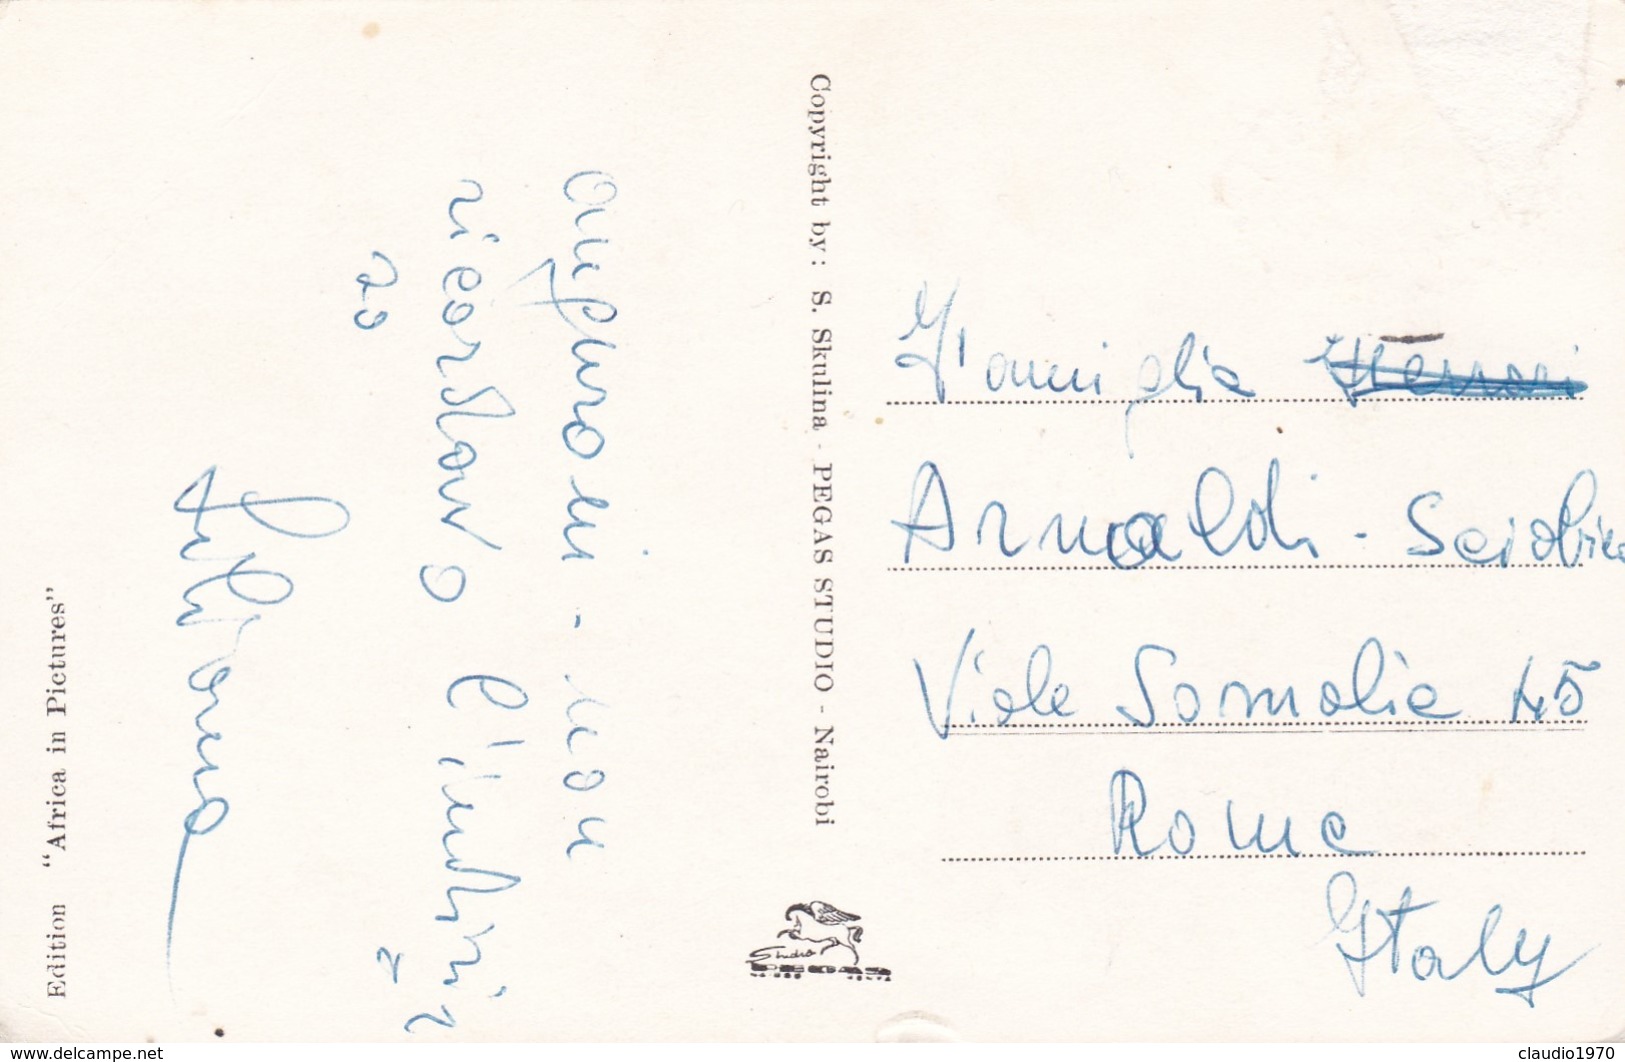 auguroni - non
ricordavo l'indiriz
zo
Silvana
Edition "Africa in Pictures"
Copyright by: S. Skulina - PEGAS STUDIO - Nairobi
Studio
PEGAS
Famiglia
Arnaldi - 
Viale Somalia 45
Roma
Italy
www.delcampe.net
claudio1970